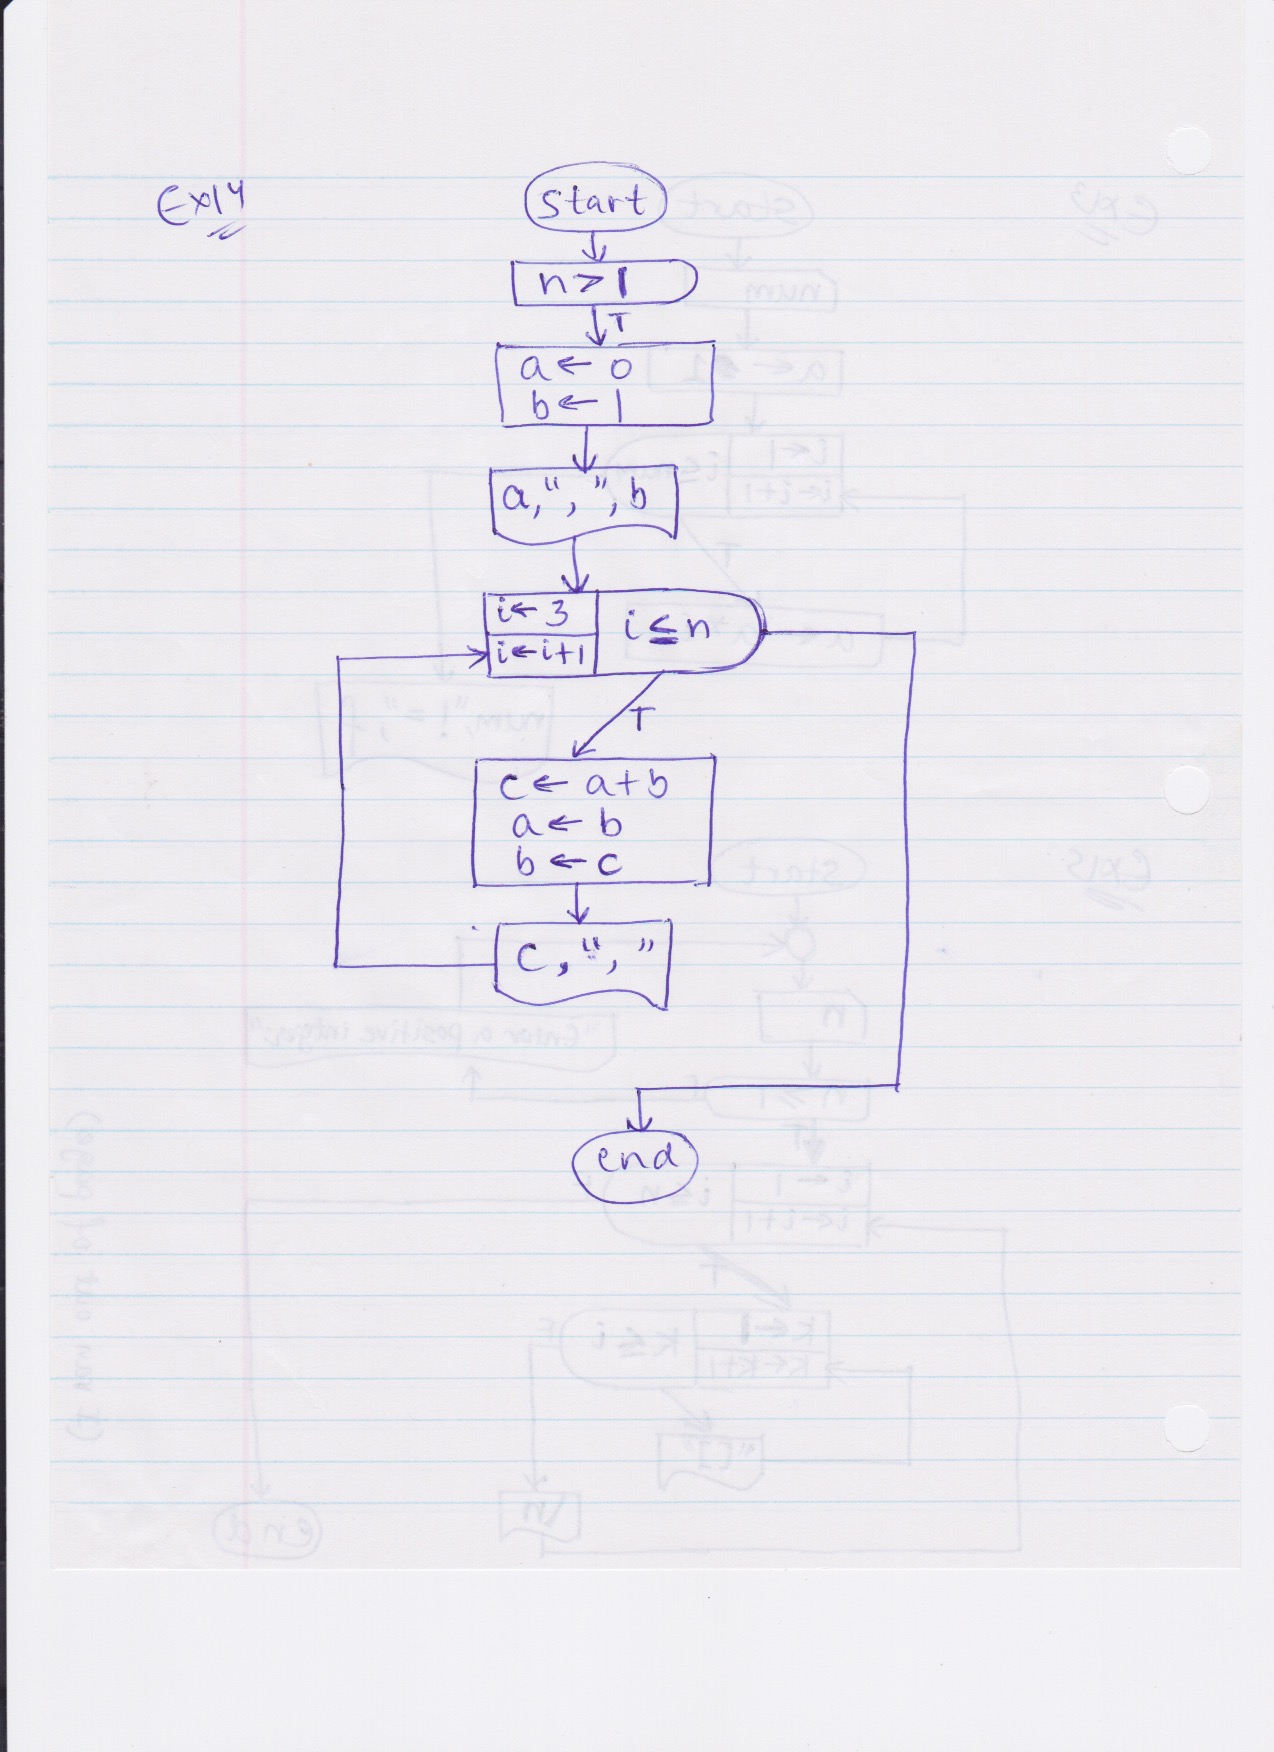 Ex14
start
n > 1
T
a ← 0
b ← 1
a, ", ", b
i ← 3
i ≤ n
i ← i+1
T
c ← a+b
a ← b
b ← c
c, ", "
end